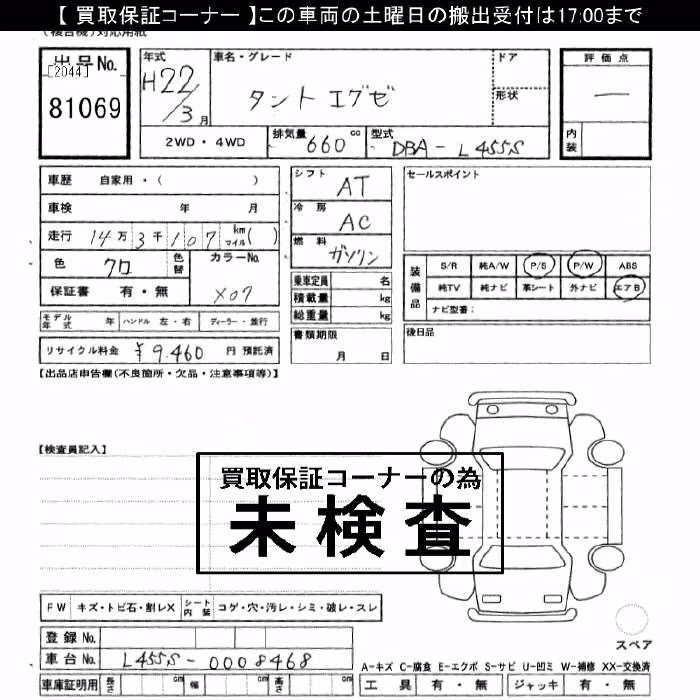 【 買取保証コーナー 】この車両の土曜日の搬出受付は17:00まで
(複合機)対応用紙
出品No.
[2044]
81069
年式
H22/3月
車名・グレード
タント エグゼ
ドア
形状
評価点
—
内装
2WD・4WD
排気量 660 cc
型式 DBA-L455S
車歴 自家用・( )
車検 年 月
走行 14万3千107 km マイル( )
色 クロ 色替
カラーNo. X07
保証書 有・無
シフト AT
冷房 AC
燃料 ガソリン
乗車定員 名
積載量 kg
総重量 kg
書類期限
月 日
セールスポイント
装備品
S/R 純A/W P/S P/W ABS
純TV 純ナビ 革シート 外ナビ エアB
ナビ型番:
後日品
モデル年式 年 ハンドル 左・右 ディーラー・並行
リサイクル料金 ¥9,460 円 預託済
【出品店申告欄(不良箇所・欠品・注意事項等)】
【検査員記入】
買取保証コーナーの為
未検査
FW キズ・トビ石・割レX シート内装 コゲ・穴・汚レ・シミ・破レ・スレ
スペア
登録No.
車台No. L455S-0008468
A-キズ C-腐食 E-エクボ S-サビ U-凹ミ W-補修 XX-交換済
車庫証明用 長さ cm 幅 cm 高さ cm
工具 有・無 ジャッキ 有・無